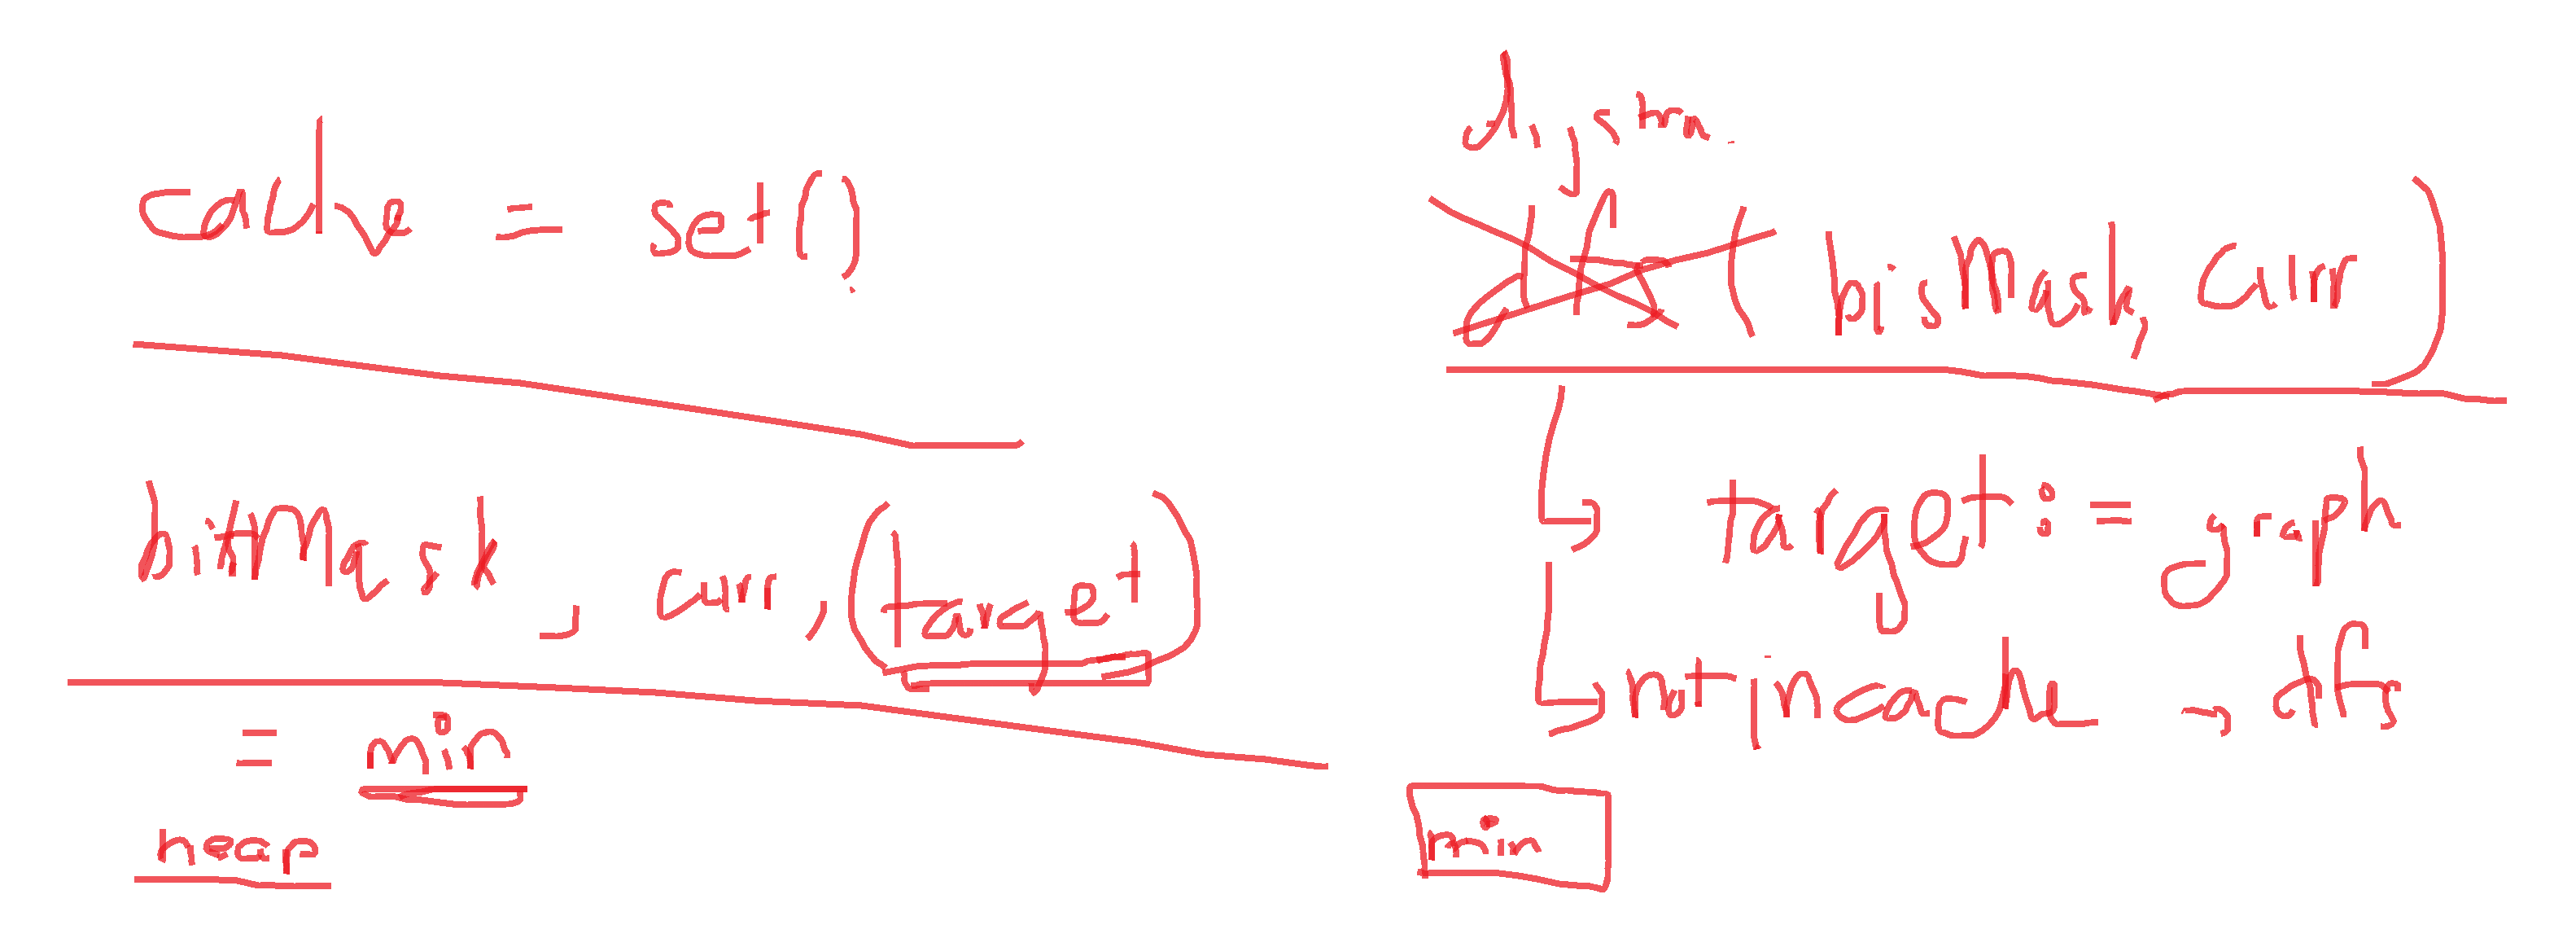 cache = set()
bitMask, curr, (target)
= min
heap
dijstra.
dfs( bisMask, curr)
target := graph
not in cache → dfs
min